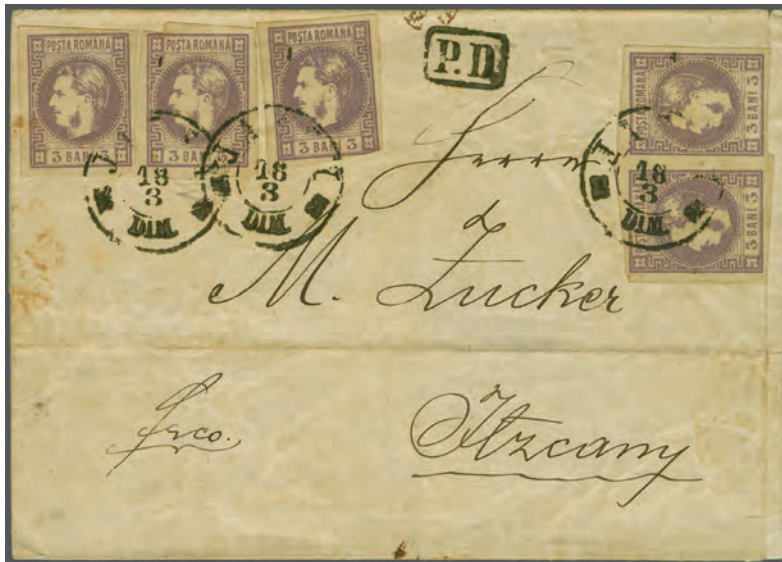 POSTA ROMANĂ
3 BANI 3
POSTA ROMANĂ
3 BANI 3
POSTA ROMANĂ
3 BANI 3
P.D.
POSTA ROMANĂ
3 BANI 3
POSTA ROMANĂ
3 BANI 3
18
3
DIM.
18
3
DIM.
18
3
DIM.
Herrn
M. Zucker
frco.
Itzcany